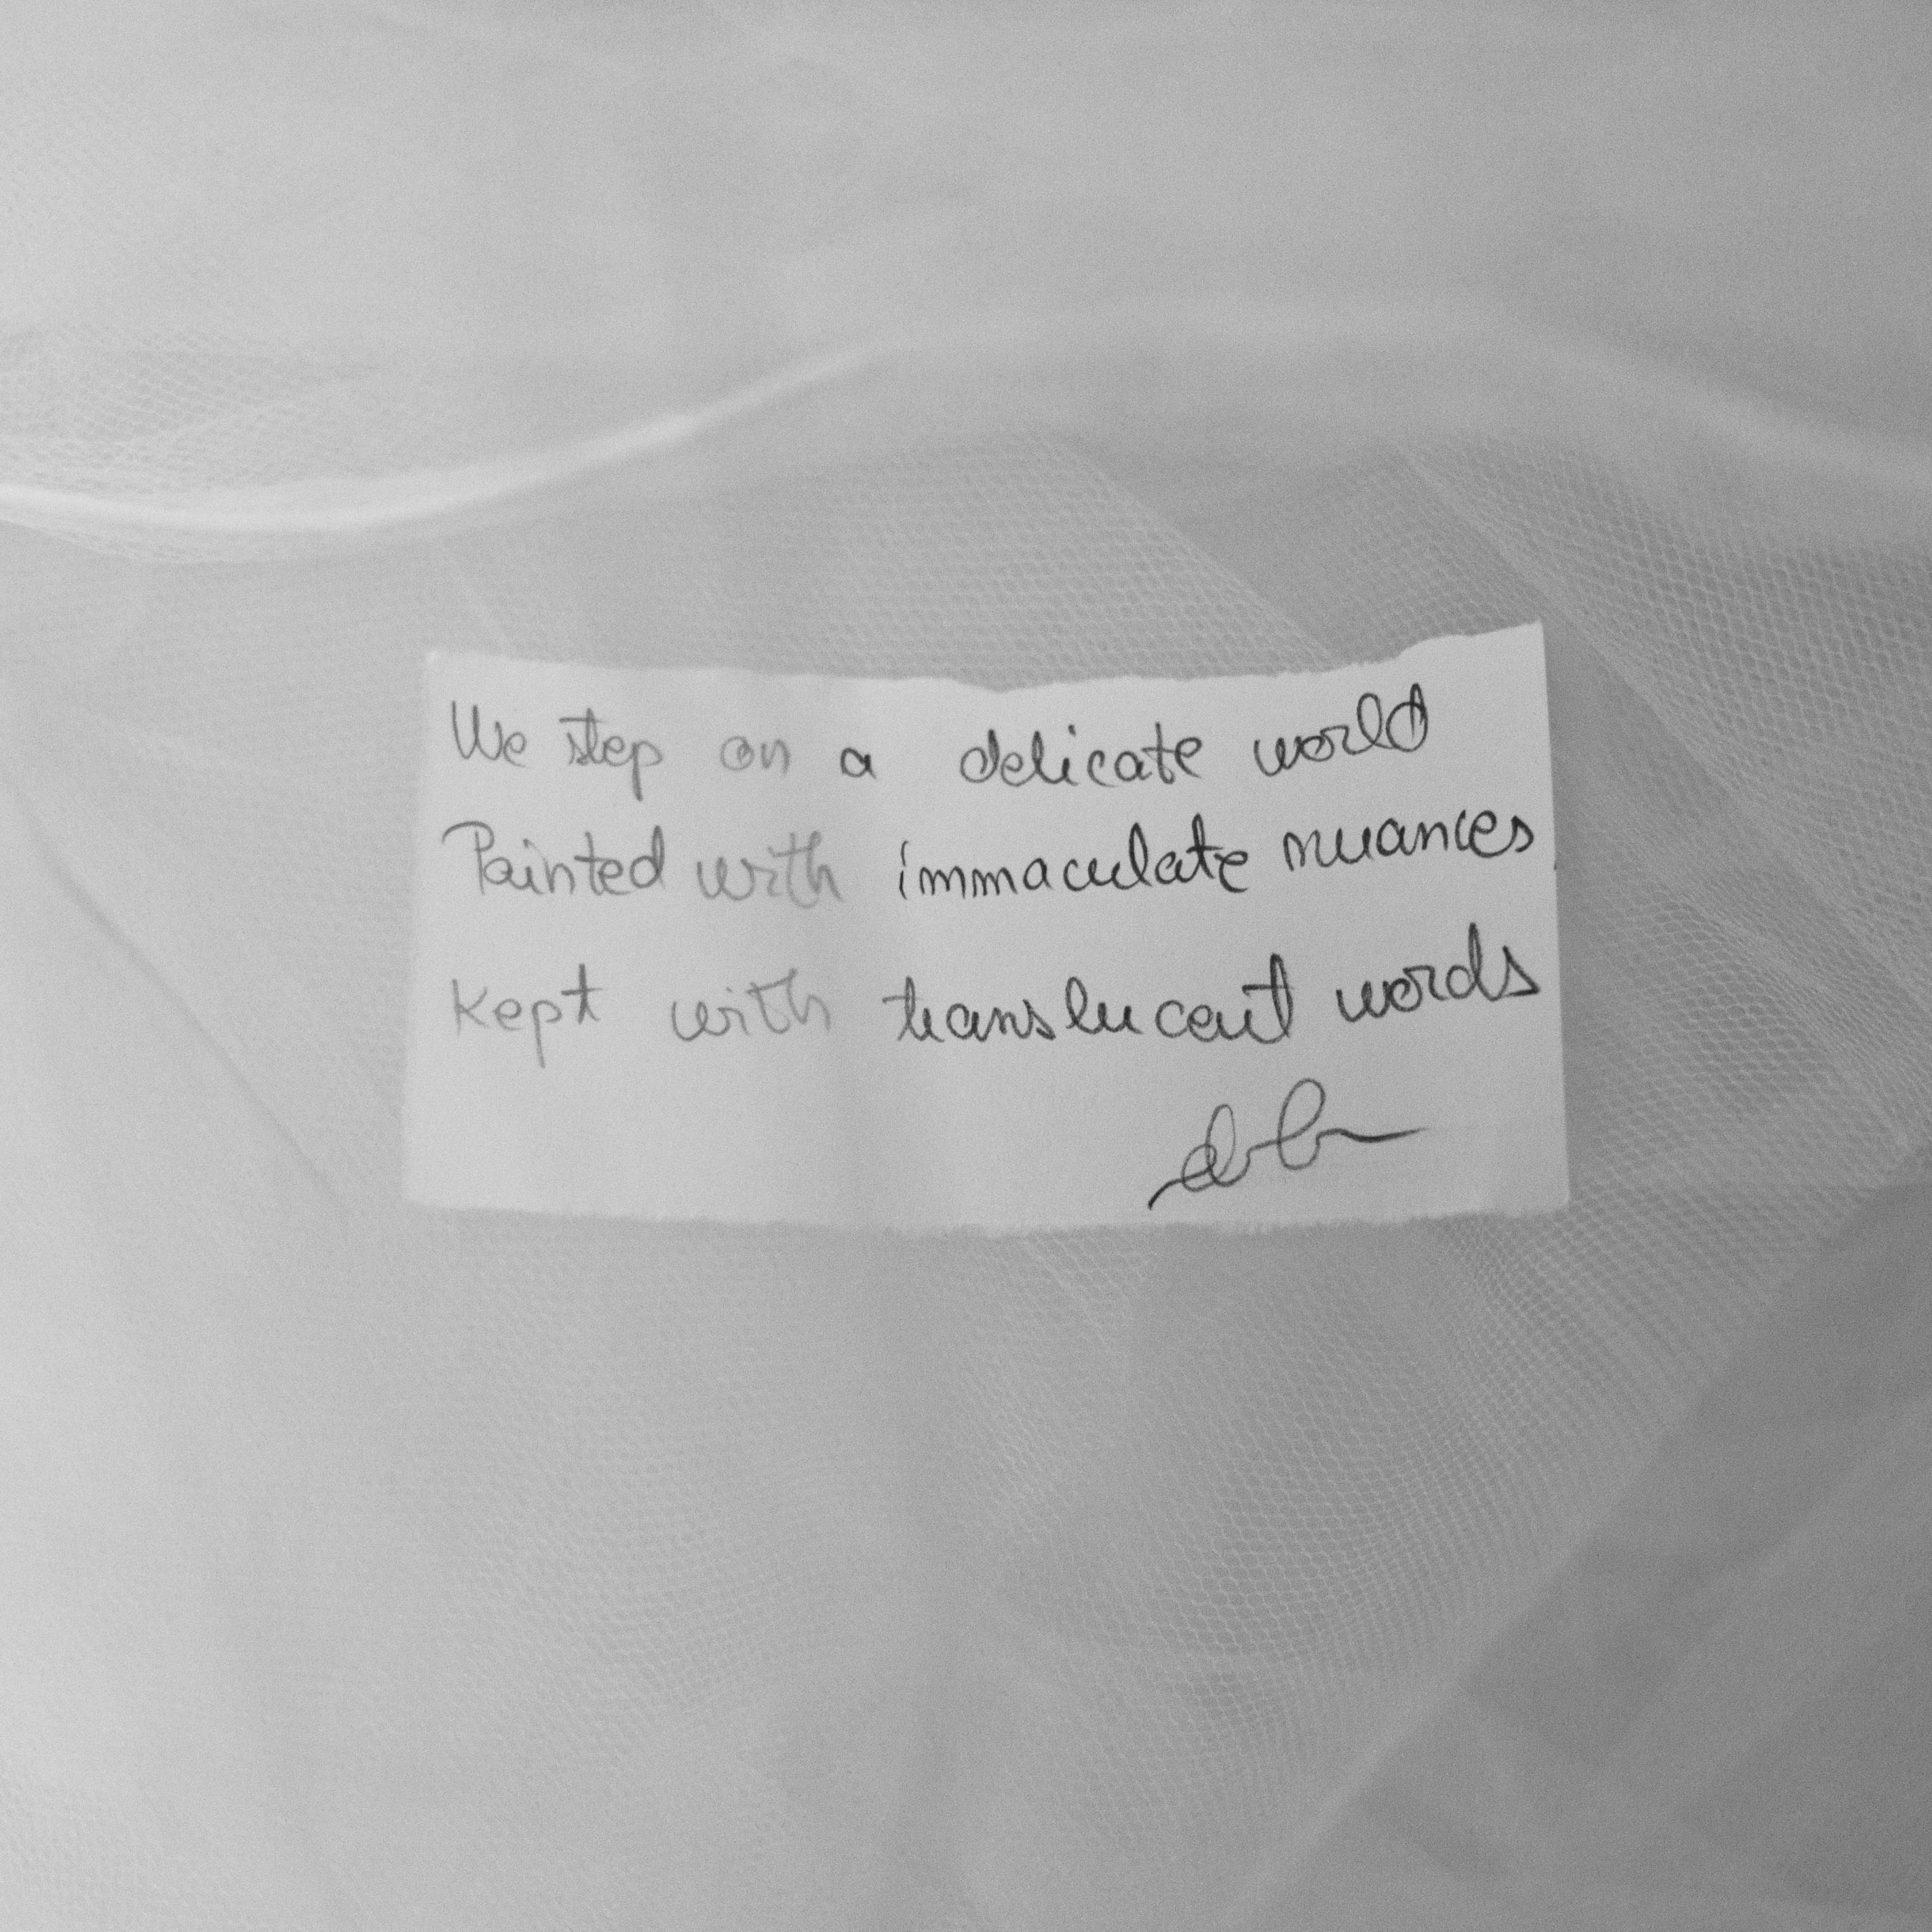 We step on a delicate world
Painted with immaculate nuances,
Kept with translucent words